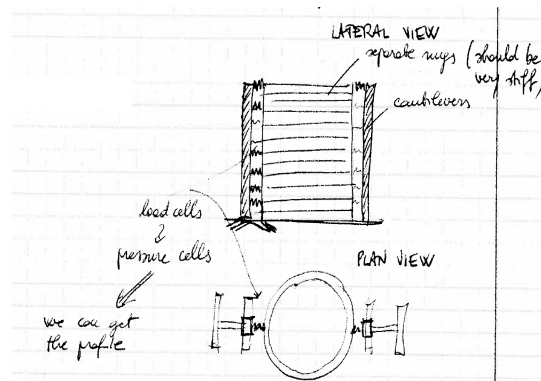 LATERAL VIEW
separate rings (should be
very stiff)
cantilevers
load cells
pressure cells
PLAN VIEW
we can get
the profile